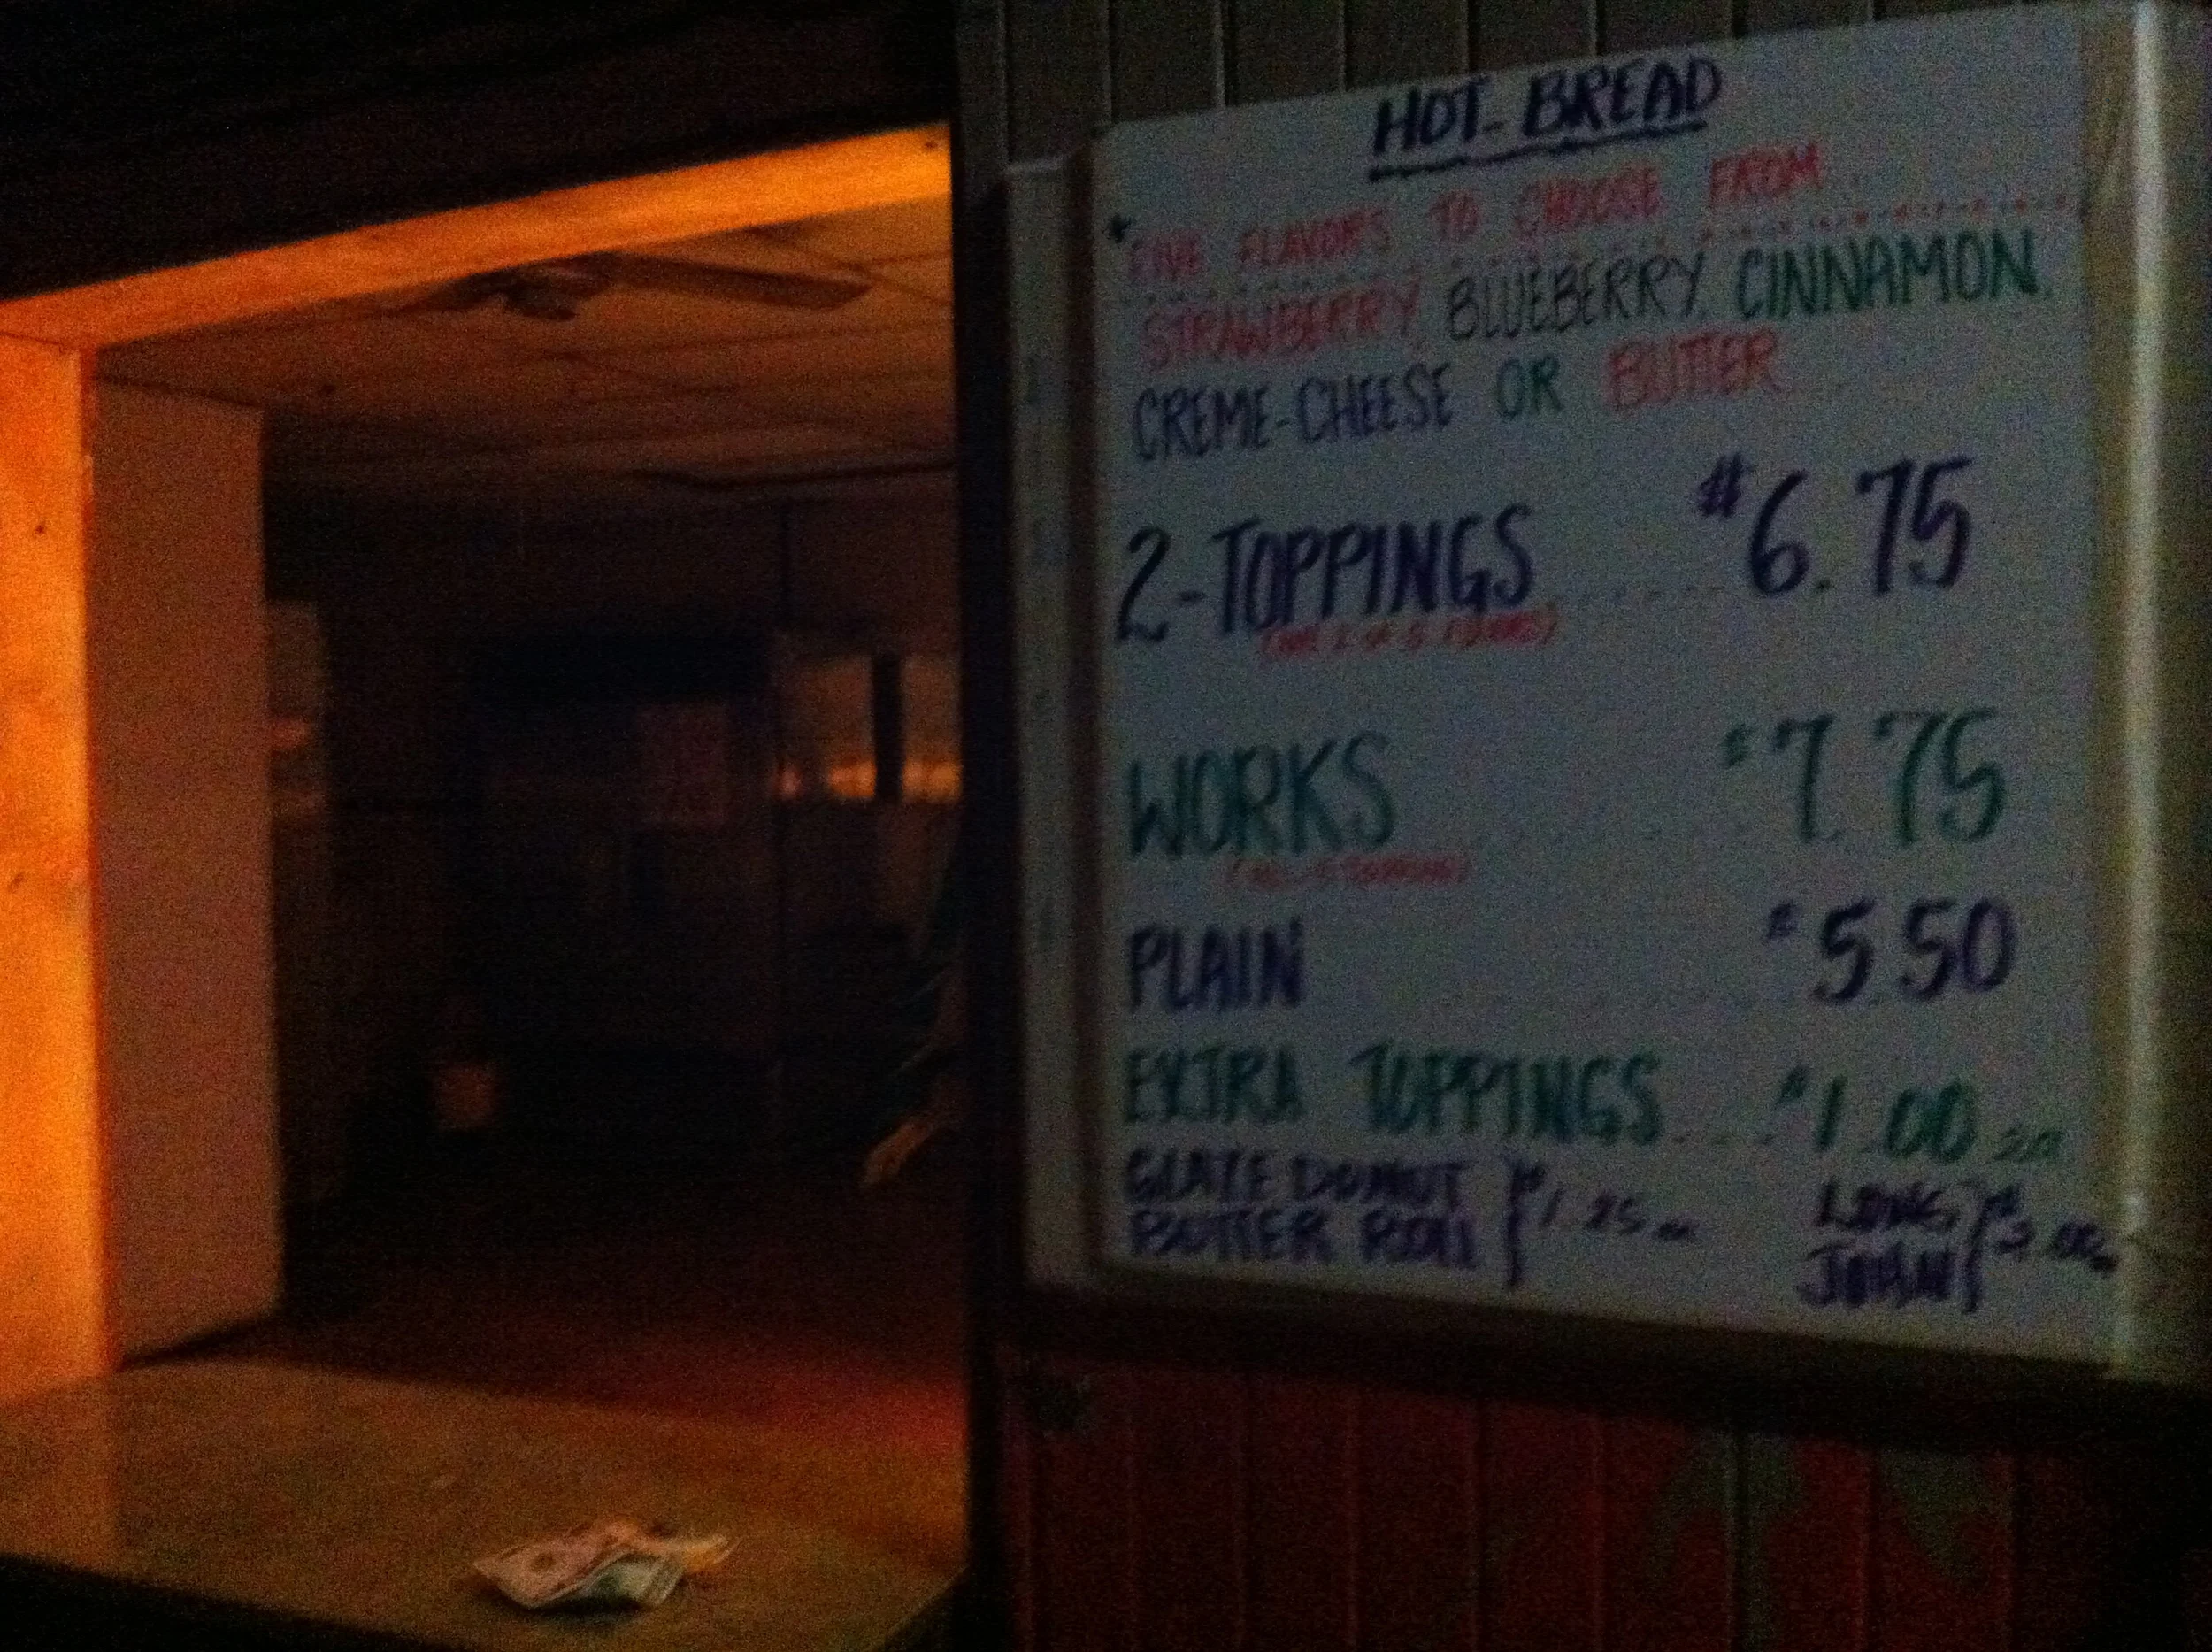 HOT-BREAD
* FIVE FLAVORS TO CHOOSE FROM
STRAWBERRY, BLUEBERRY, CINNAMON,
CREME-CHEESE OR BUTTER
2-TOPPINGS $6.75
WORKS $7.75
(ALL-5 TOPPINGS)
PLAIN $5.50
EXTRA TOPPINGS $1.00
GLAZE DONUT
BUTTER ROLL } $1.25
LONG
JOHN